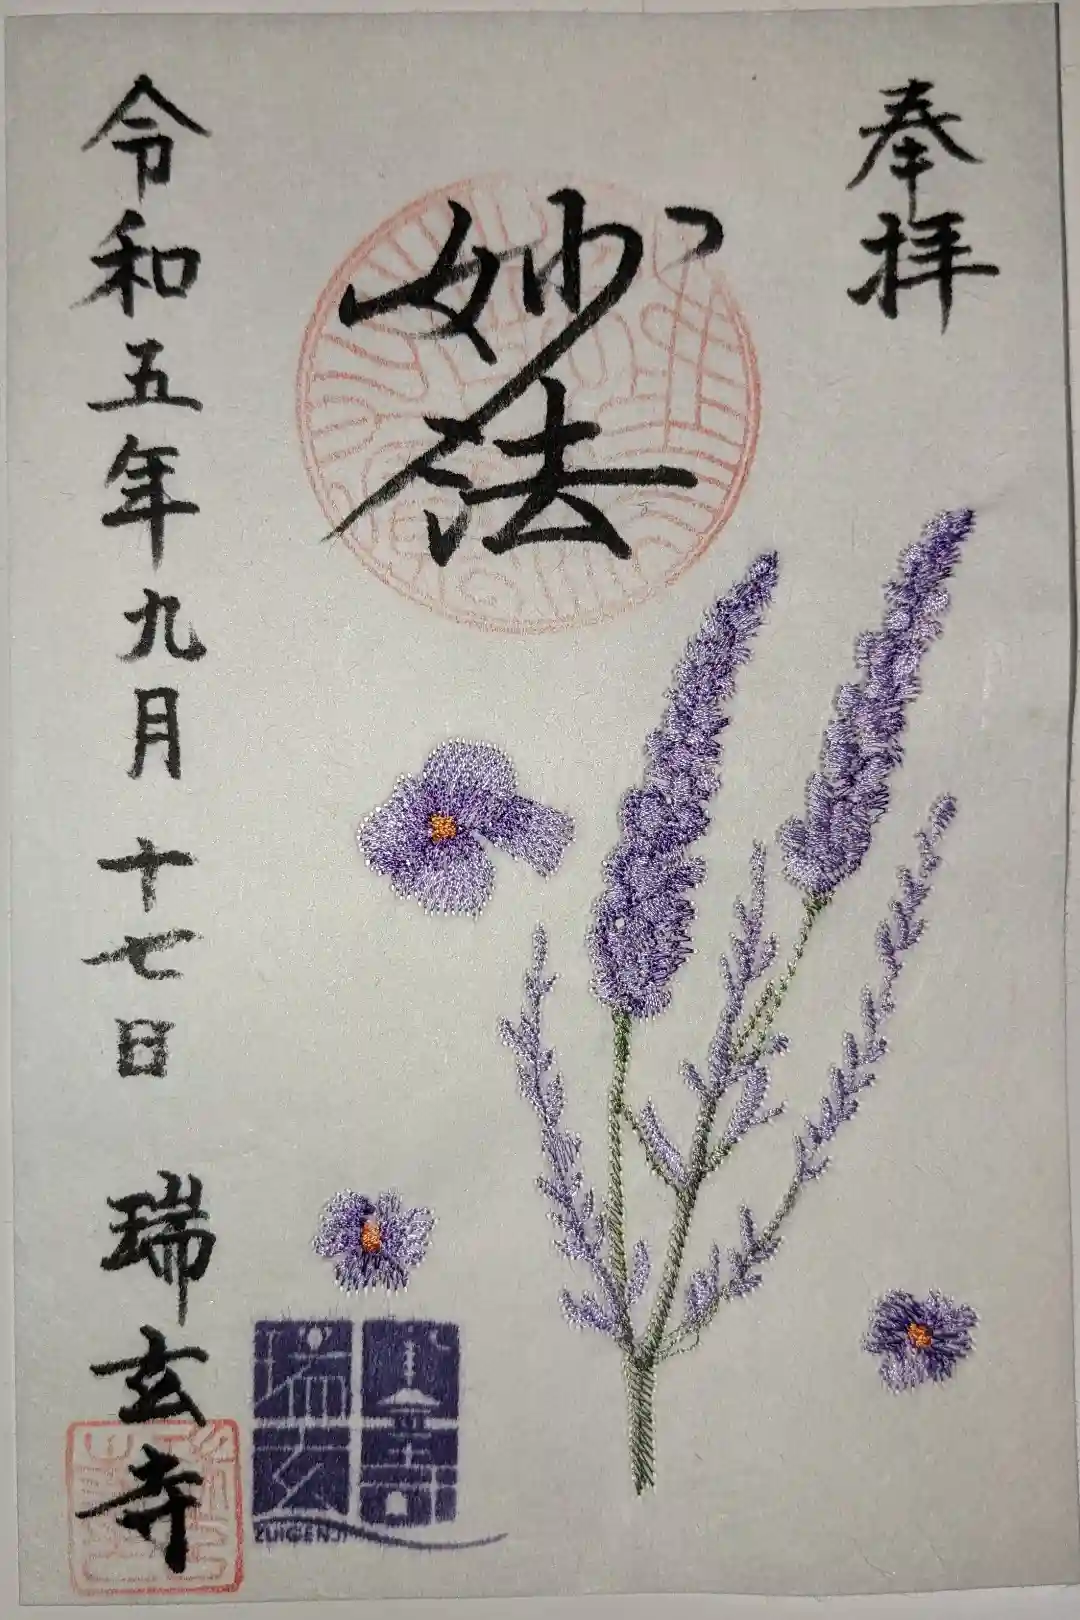 奉拝
妙法
令和五年九月十七日 瑞玄寺
瑞玄寺
ZUIGENJI